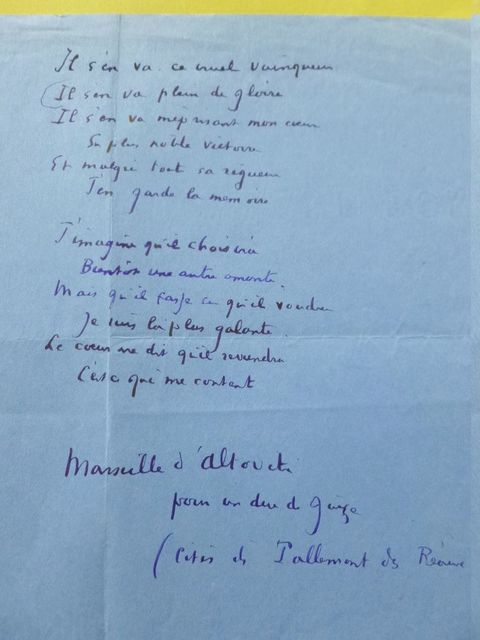 Il s'en va ce cruel vainqueur
Il s'en va plein de gloire
Il s'en va méprisant mon cœur
Sa plus noble victoire
Et malgré tout sa rigueur
J'en garde la mémoire
J'imagine qu'il choisira
Bientôt une autre amante.
Mais qu'il fasse ce qu'il voudra
Je suis la plus galante.
Le cœur me dit qu'il reviendra
C'est ce qui me contente
Marseille d'Altoviti
pour un duc de Guise
(Cités de Tallement des Réaux